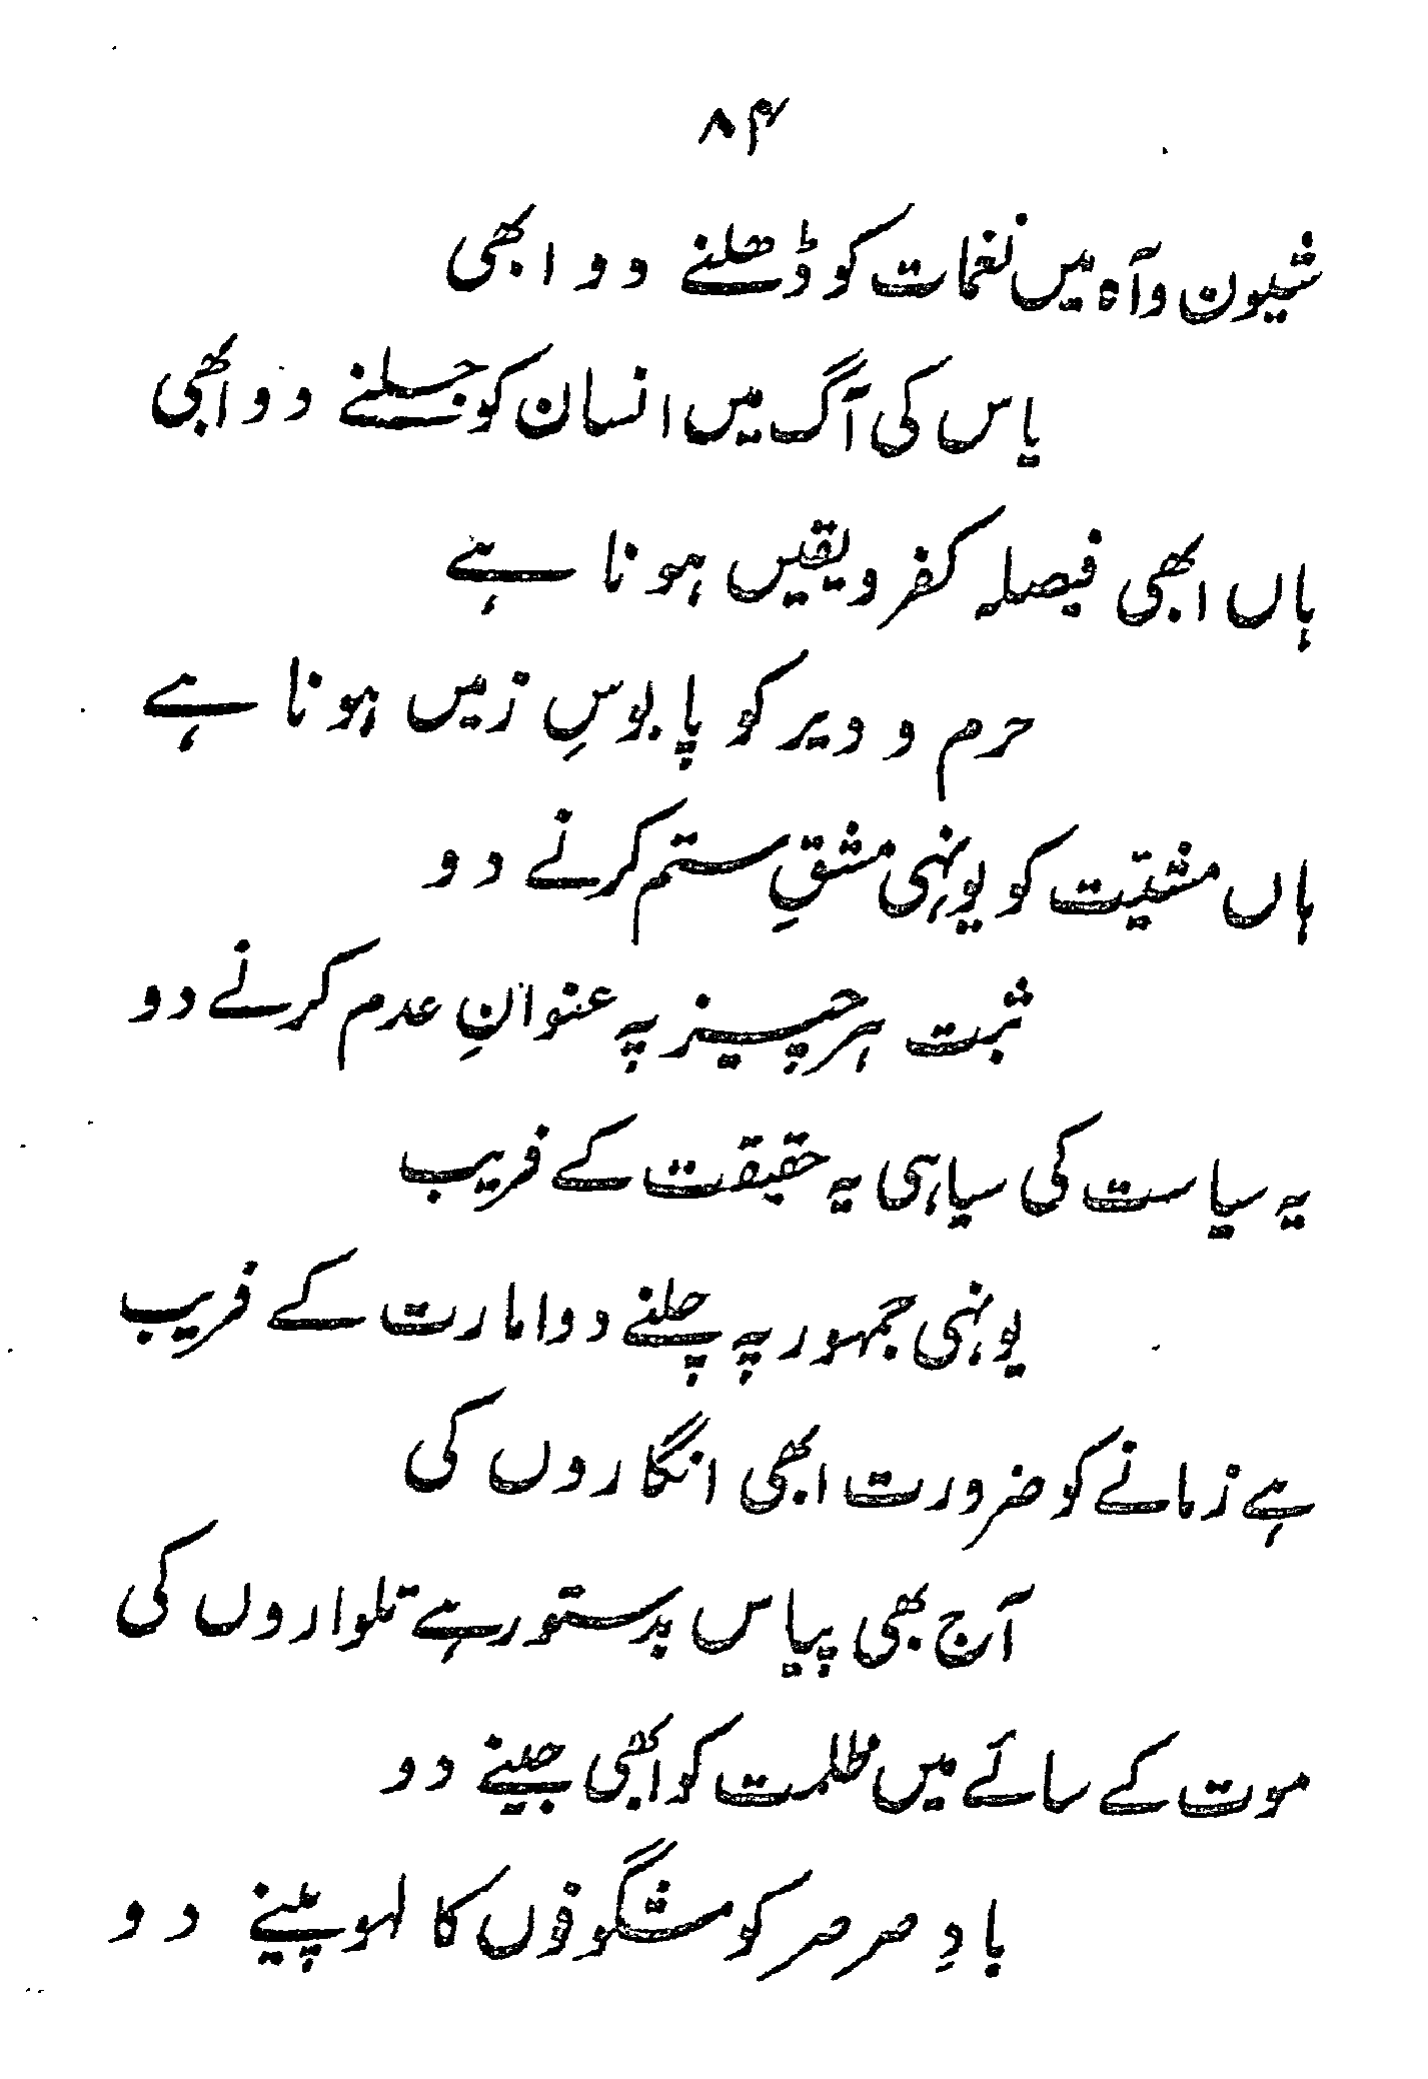 ۸۴
شیون و آہ میں نغمات کو ڈھلنے دو ابھی
یاس کی آگ میں انسان کو جلنے دو ابھی
ہاں ابھی فیصلہ کفر و یقیں ہونا ہے
حرم و دیر کو پابوسِ زمیں ہونا ہے
ہاں مشیّت کو یونہی مشقِ ستم کرنے دو
ثبت ہر چیز پہ عنوانِ عدم کرنے دو
یہ سیاست کی سیاہی یہ حقیقت کے فریب
یونہی جمہور پہ چلنے دو امارت کے فریب
ہے زمانے کو ضرورت ابھی انگاروں کی
آج بھی پیاس بدستور ہے تلواروں کی
موت کے سائے میں ظلمت کو ابھی جینے دو
بادِ صرصر کو شگوفوں کا لہو پینے دو